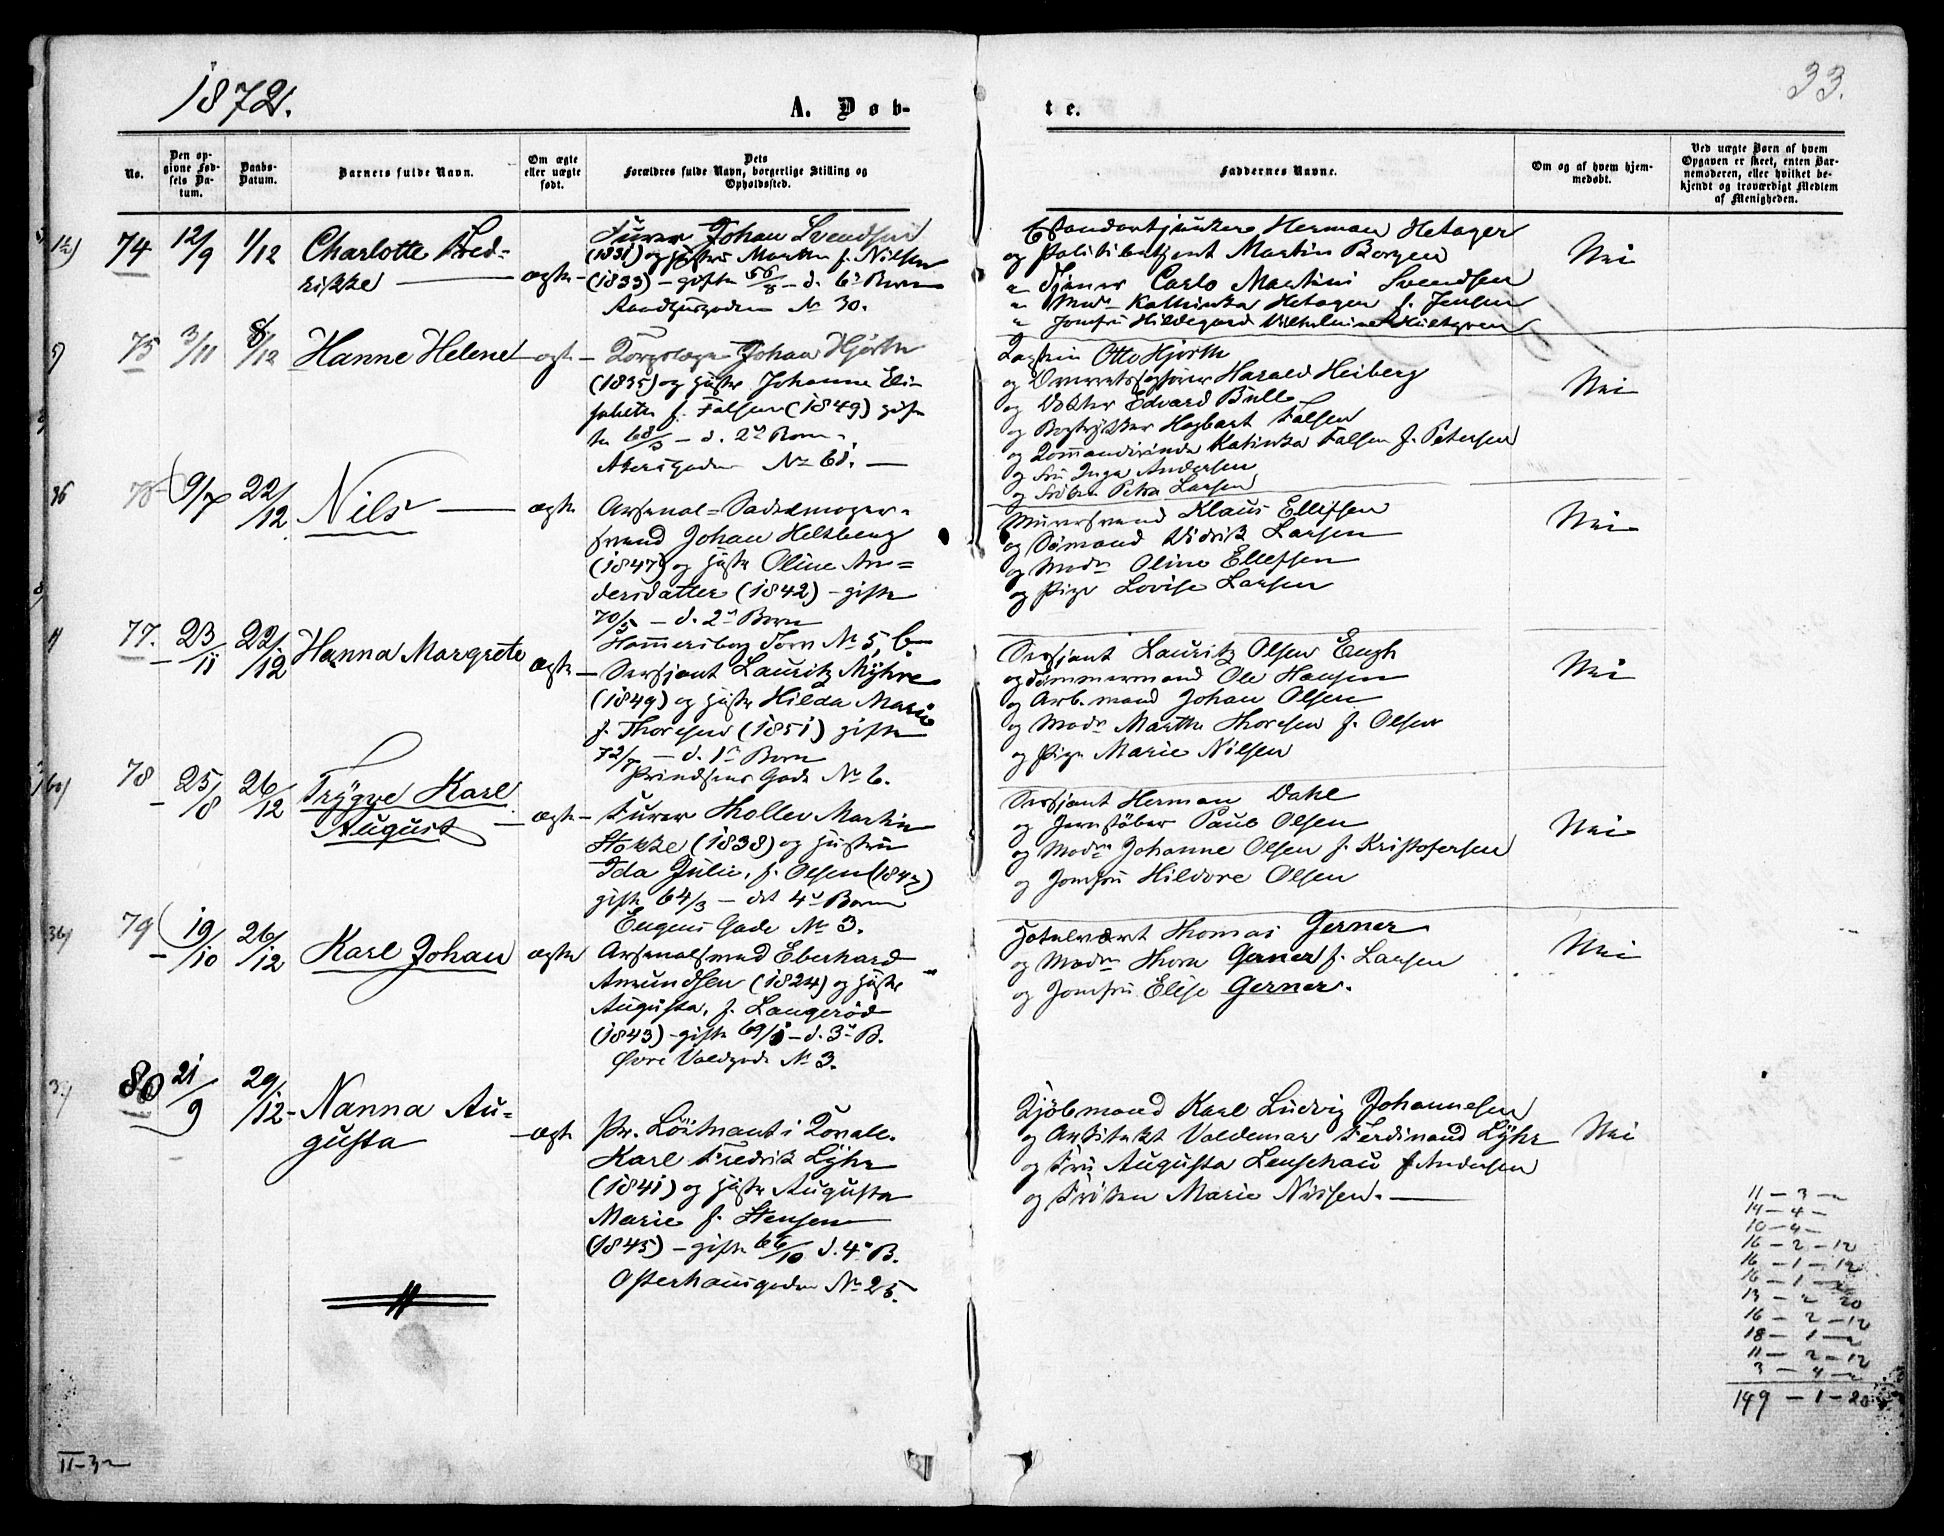 1872.
A. Døb-
te.
33.
No.
Den op-
givne Fød-
sels Da-
tum.
Daabs-
Datum.
Barnets fulde Navn.
Om ægte
eller uægte
født.
Dets
Forældres fulde Navn, borgerlige Stilling og
Opholdssted.
Faddernes Navne.
Om og af hvem hjem-
medøbt.
Ved uægte Børn af hvem
Opgaven er skeet, enten Bar-
nemoderen, eller hvilket be-
kjendt og troværdigt Medlem
af Menigheden.
74 12/9 1/12 Charlotte Fred-
rikke — ægte
Furer Johan Svendsen
(1831) og Hustru Marthe f. Nilsen
(1833) – gifte 56/8 – d. 6te Barn
No 30.
Herman Hetager
og Politibetjent Martin Borgen
" Tjener Carlo Martini Svendsen
" Mad. Kathinka Hetagen f. Jensen
" Jomfru Hildegard Vilhelmine
Nei
75 3/11 8/12 Hanne Helene – ægte –
Korpslæge Johan Hjorth
(1835) og Hustr Johanne Eli-
sabeth f. Falsen (1849) gif-
te 68/5 – d. 2et Barn.
Akersgaden No 61. —
Otto Hjorth
og Overretssagfører Harald Heiberg
og Doktor Edvard Bull
og Bogtrykker Hagbart Falsen
og Katinka Falsen f. Petersen
og Fru Inga Andersen
og Frøken Petra Larsen
Nei
9/7 22/12 Nils — ægte
Arsenal-Sadelmager-
svend Johan Heltberg
(1847) og Hustr Oline An-
dersdatter (1842) – gifte
70/5 – d. 2et Barn
Hammersborg Torv No 5, b
Murersvend Klaus Ellefsen
og Sømand Didrik Larsen
og Madm Oline Ellefsen
og Pige Lovise Larsen
Nei
77. 23/11 22/12 Hanna Margrete ægte –
Sersjant Lauritz Myhre
(1849) og Hustr Hilda Marie
f. Thoresen (1851) gifte
72/ – d. 1ste Barn
Prindsens Gade No 6.
Sersjant Lauritz Olsen Engh
og Tømmermand Ole Hansen
og Arb.mand Johan Olsen
og Madm Marthe Thoresen f. Olsen
og Pige Marie Nilsen
Nei
78 25/8 26/12 Trygve Karl
August — ægte –
Furer Tholler Martin
Stokke (1838) og Hustru
Ida Julie, f. Olsen (1842)
gifte 64/3 – det 4de Barn
Eugenis Gade No 3.
Sersjant Herman Dahl
og Jernstøber Paul Olsen
og Madm Johanne Olsen f. Kristofersen
og Jomfru Hildore Olsen
Nei
79 19/10 26/12 Karl Johan ægte
Arsenalsmed Eberhard
Amundsen (1824) og Hustr
Augusta, f. Langerød
(1843) – gifte 69/1 – d. 3de B.
Øvre Voldgade No 3.
Hotelvært Thomas Gerner
og Madm Thora Gerner f. Larsen
og Jomfru Elise Gerner.
Nei
80 21/9 29/12 – Nanna Au-
gusta – ægte
Pr. Löitnant i Kavall.
Karl Fredrik Lyhr
(1841) og Hustr Augusta
Marie f. Stensen
(1845) – gifte 66/10 d. 4de B.
Osterhausgaden No 25.
Kjøbmand Karl Ludvig Johannesen
og Arkitekt Valdemar Ferdinand Lyhr
og Fru Augusta Lenschau f. Andersen
og Frøken Marie Nilsen. —
Nei
11 – 3 –
14 – 4 –
10 – 4 –
16 – 2 – 12
16 – 1 – 12
16 – 1 –
13 – " 20
16 – 2 – 12
18 – 1 – "
11 – 2 – 12
3 – 4 – "
149 – 1 – 20
II – 3 –